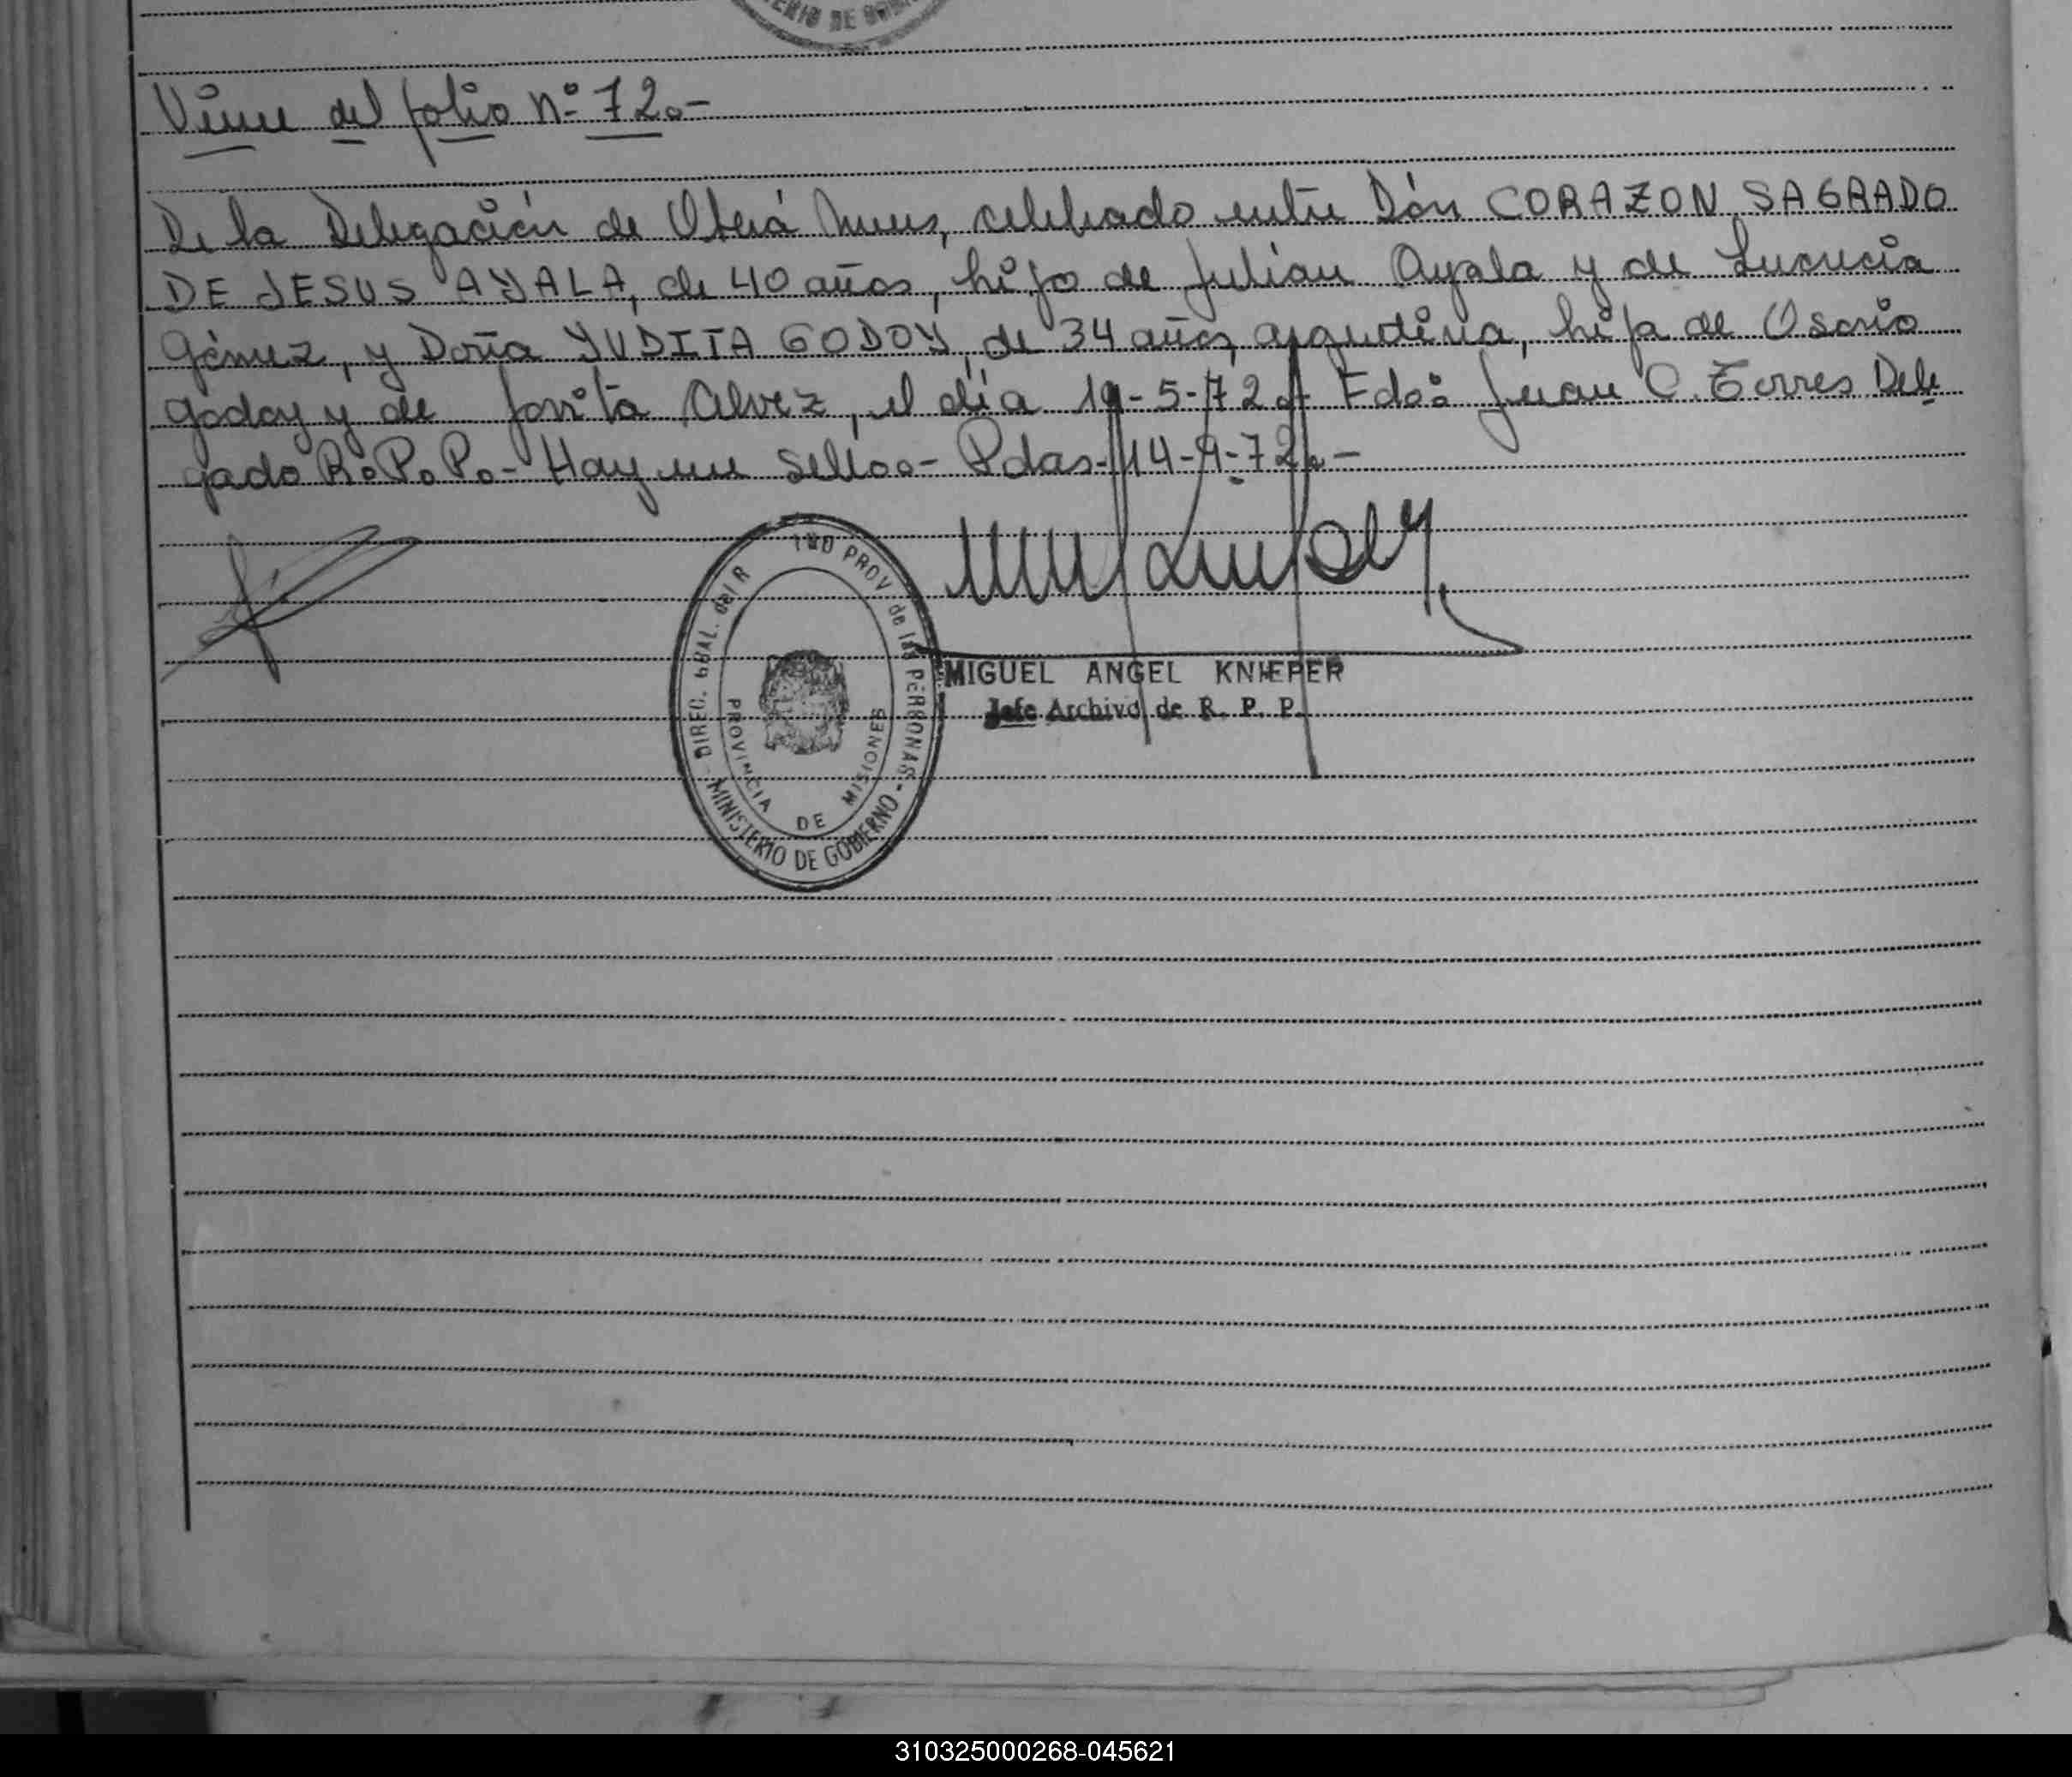 Viene del folio Nº 72.-
De la Delegación de Oberá Mnes, celebrado entre Dón CORAZON SAGRADO
DE JESUS AYALA, de 40 años, hijo de Julián Ayala y de Lucrecia
Gómez, y Doña YUDITA GODOY, de 34 años, argentina, hija de Osorio
Godoy y de Jovita Alvez, el día 19-5-72.- Fdo: Juan C. Torres Dele
gado R.P.P.- Hay un Sello.- Pdas-14-9-72.-
DIREC. GRAL. del R PROV de las PERSONAS - MINISTERIO DE GOBIERNO -
PROVINCIA DE MISIONES
MIGUEL ANGEL KNIEPER
Jefe Archivo de R. P. P.
310325000268-045621